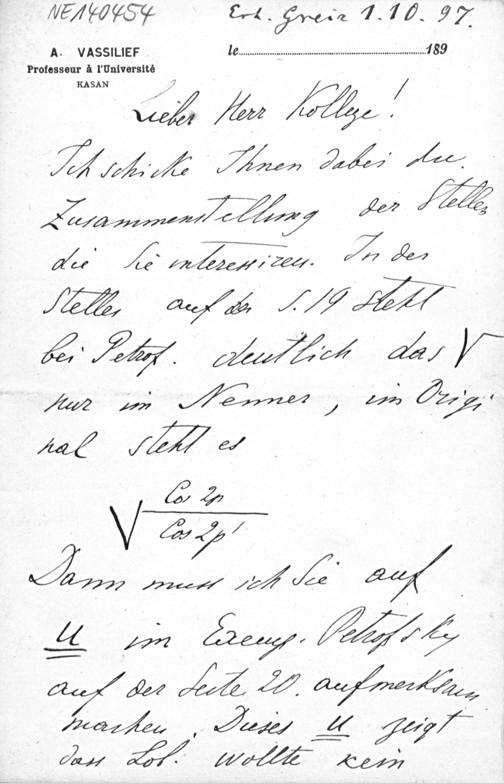 NE140454
Erh. Greiz 1.10.97.
A. VASSILIEF
Professeur à l'Université
KASAN
le 189
Lieber Herr Kollege!
Ich schicke Ihnen dabei die
Zusammenstellung der Stellen
die Sie interessiren. In der
Stelle auf der S. 19 steht
bei Petrof. deutlich das √
nur im Nenner, im Origi
nal steht es
√ Cos 2p
Cos 2p'
Dann muss ich Sie auf
u im Exemp. Petrofsky
auf der Seite 20. aufmerksam
machen. Dieses u zeigt
dass Lob. wollte kein